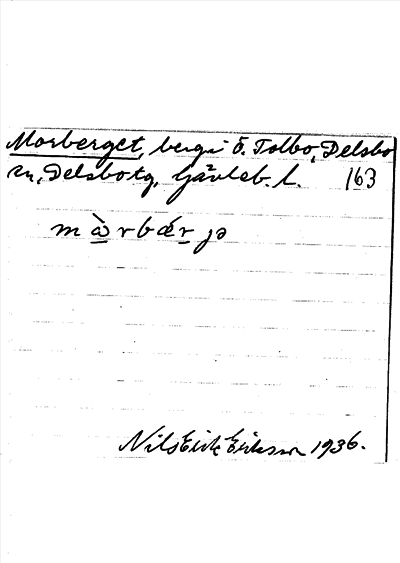 Morberget, berg i Ö. Tolbo, Delsbo
sn, Delsbo tg, Gävleb. l. 163
mὰrbǽrjə
Nils Erik Eriksson 1936.